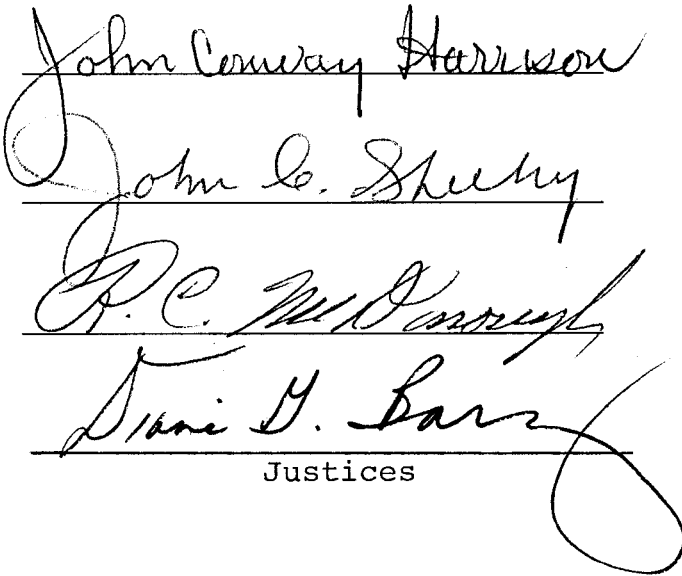 John Conway Harrison
John C. Sheehy
R. C. McDonough
Diane G. Barz
Justices